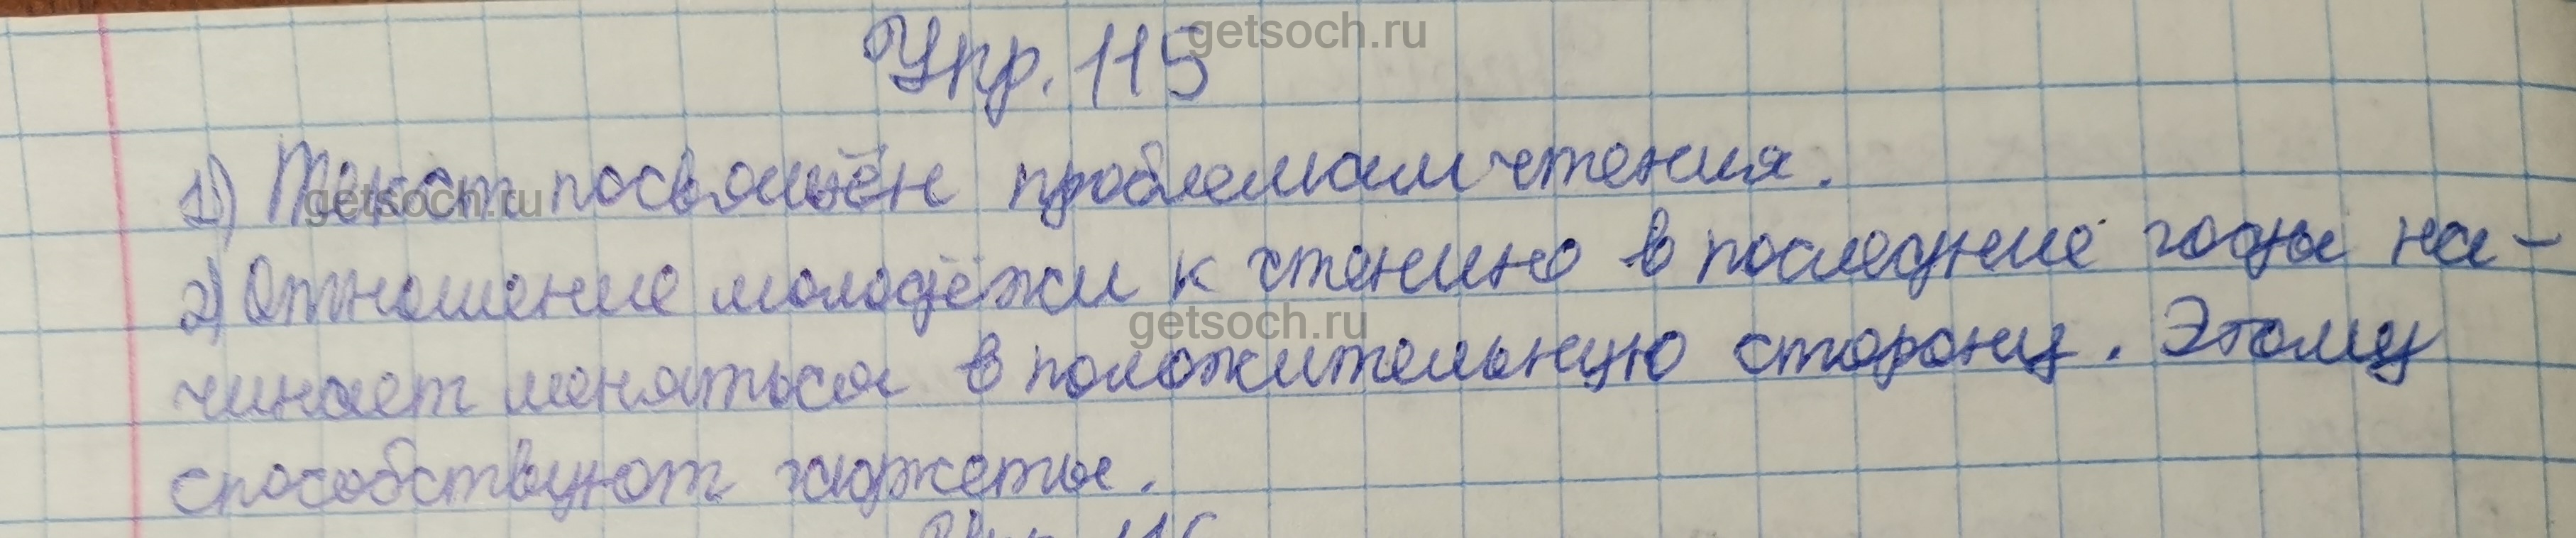 Упр. 115
getsoch.ru
1) Текст посвящён проблемам чтения.
getsoch.ru
2) Отношение молодёжи к чтению в последние годы на-
getsoch.ru
чинает меняться в положительную сторону. Этому
способствуют гаджеты.
Упр. 116